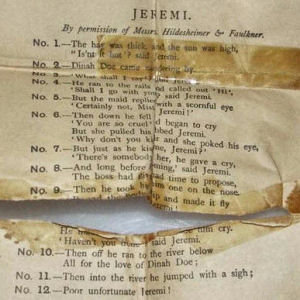 JEREMI.
By permission of Messrs. Hildesheimer & Faulkner.
No. 1.—The hay was thick, and the sun was high,
"Isn't it hot'? said Jeremi.
No. 2.—Dinah Doe came wandering by
No. 3.—'What shall I say?'
No. 4.—He ran to the rails and called out 'Hi',
'Shall I go with you' said Jeremi.
No. 5.—But the maid replied with a scornful eye
'Certainly not, Jeremi!'
No. 6.—Then down he fell began to cry
'You are so cruel' Jeremi.
But she pulled his and poked his eye,
'Why don't you Jeremi.
No. 7.—But just as he Jeremi?'
'There's somebody he gave a cry,
No. 8.—And long before thing,' said Jeremi.
The boss had time to propose,
No. 9.—Then he took him one on the nose.
and made it fly
him cry.
'Haven't you done' said Jeremi.
No. 10.—Then off he ran to the river below
All for the love of Dinah Doe;
No. 11.—Then into the river he jumped with a sigh;
No. 12.—Poor unfortunate Jeremi!